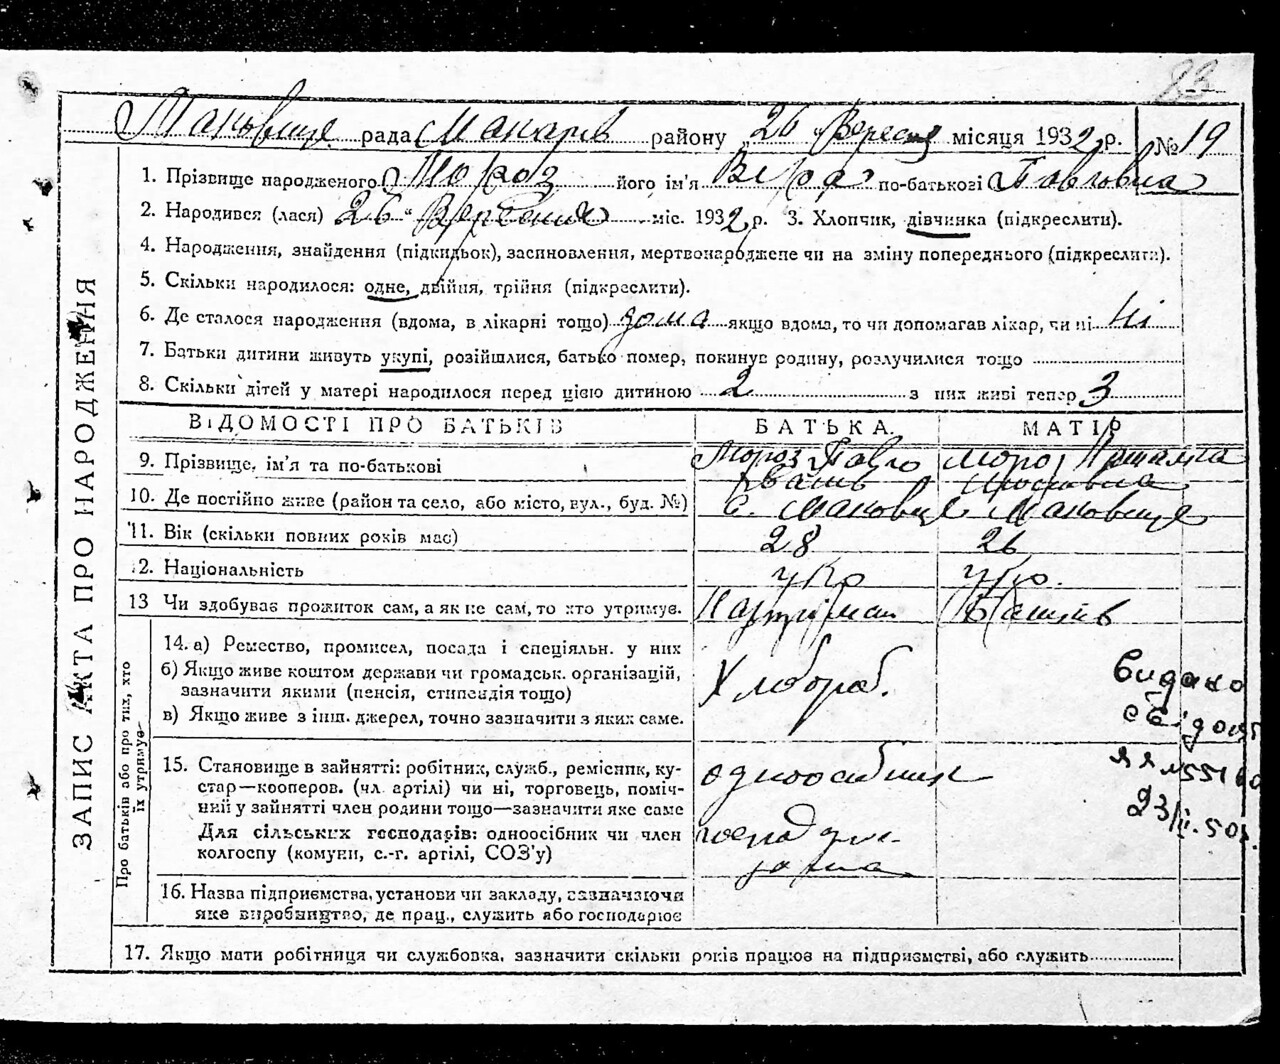 83
рада Макарів району "26" Вересня місяця 1932 р. № 19
ЗАПИС АКТА ПРО НАРОДЖЕННЯ
1. Прізвище народженого Мороз його ім'я Віра по-батькові Павловна
2. Народився (лася) 26 " Вересня міс. 1932 р. 3. Хлопчик, дівчинка (підкреслити).
4. Народження, знайдення (підкидьок), засиновлення, мертвонароджене чи на зміну попереднього (підкреслити).
5. Скільки народилося: одне, двійня, трійня (підкреслити).
6. Де сталося народження (вдома, в лікарні тощо) дома якщо вдома, то чи допомагав лікар, чи ні Ні
7. Батьки дитини живуть укупі, розійшлися, батько помер, покинув родину, розлучилися тощо
8. Скільки дітей у матері народилося перед цією дитиною 2 з них живі тепер 3
ВІДОМОСТІ ПРО БАТЬКІВ БАТЬКА МАТІР
9. Прізвище, ім'я та по-батькові Мороз Павло Мороз
10. Де постійно живе (район та село, або місто, вул., буд. №) С.
11. Вік (скільки повних років має) 28 26
12. Національність Укр Укр.
13 Чи здобуває прожиток сам, а як не сам, то хто утримує.
Про батьків або про тих, хто їх утримує
14. а) Ремество, промисел, посада і спеціяльн. у них
б) Якщо живе коштом держави чи громадськ. організацій,
зазначити якими (пенсія, стипендія тощо)
Хлібороб.
в) Якщо живе з інш. джерел, точно зазначити з яких саме.
Видано
свідоцт
15. Становище в зайнятті: робітник, служб., ремісник, ку-
стар—кооперов. (чл. артілі) чи ні, торговець, поміч-
ний у зайнятті член родини тощо—зазначити яке саме
Для сільських господарів: одноосібник чи член
колгоспу (комуни, с.-г. артілі, СОЗ'у)
одноосібник
23/II.50р.
16. Назва підприємства, установи чи закладу, зазначаючи
яке виробництво, де прац., служить або господарює
17. Якщо мати робітниця чи службовка, зазначити скільки років працює на підприємстві, або служить